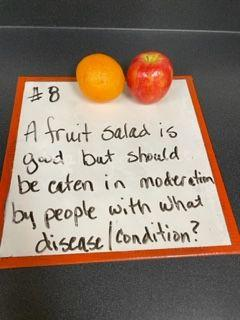 #8
A fruit salad is
good but should
be eaten in moderation
by people with what
disease/condition?